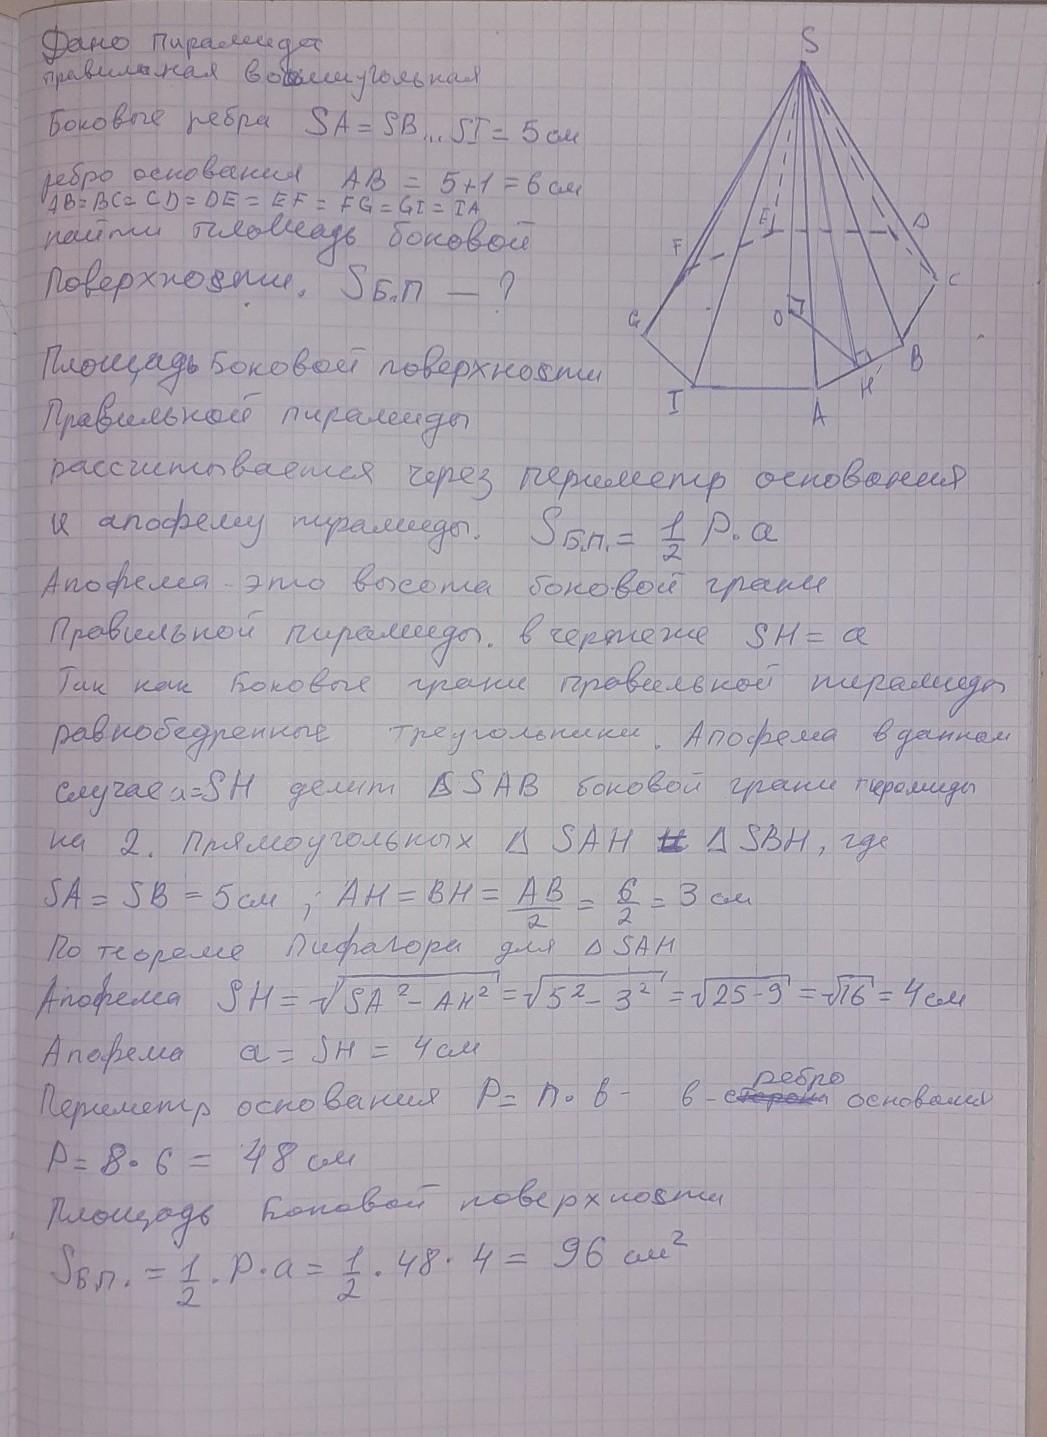 Дано пирамида
правильная восьмиугольная
Боковые ребра SA = SB...SI = 5 см
ребро основания AB = 5+1 = 6 см
AB = BC = CD = DE = EF = FG = GI = IA
найти площадь боковой
поверхности. Sб.п — ?
Площадь боковой поверхности
Правильной пирамиды
рассчитывается через периметр основания
и апофему пирамиды. Sб.п. = 1/2 P·a
Апофема - это высота боковой грани
Правильной пирамиды. в чертеже SH = a
Так как боковые грани правильной пирамиды
равнобедренные треугольники. Апофема в данном
случае a=SH делит Δ SAB боковой грани пирамиды
на 2. прямоугольных Δ SAH и Δ SBH, где
SA = SB = 5 см ; AH = BH = AB/2 = 6/2 = 3 см
По теореме Пифагора для Δ SAH
Апофема SH = √(SA² - AH²) = √(5² - 3²) = √(25-9) = √16 = 4 см
Апофема a = SH = 4 см
Периметр основания P = n·в - в - ребро основания
P = 8·6 = 48 см
Площадь боковой поверхности
Sб.п. = 1/2 · P · a = 1/2 · 48 · 4 = 96 см²
S
E
D
F
C
G
O
B
H
I
A